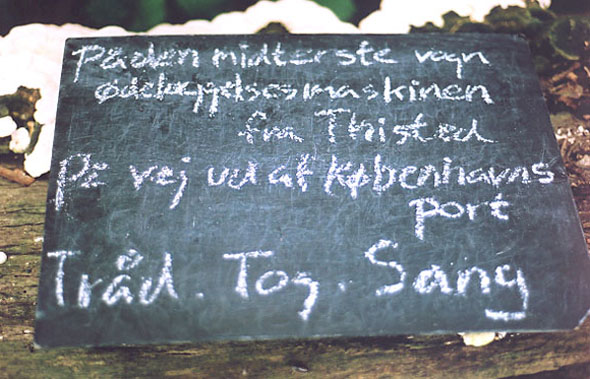 På den midterste vogn
ødelæggelsesmaskinen
fra Thisted
På vej ud af Københavns
port
Tråd. Tog. Sang